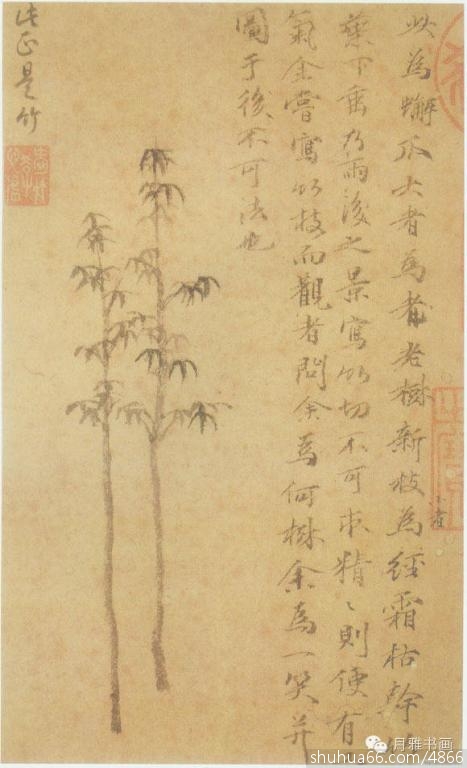 此為蠏爪大者為老樹新枝為經霜枯餘
小者
葉下垂乃雨後之景寫竹切不可求精〻則便有
氣余嘗寫竹枝而觀者問余為何樹余為一笑并
圖于後不可法也
此正是竹
月雅书画
shuhua66.com/4866